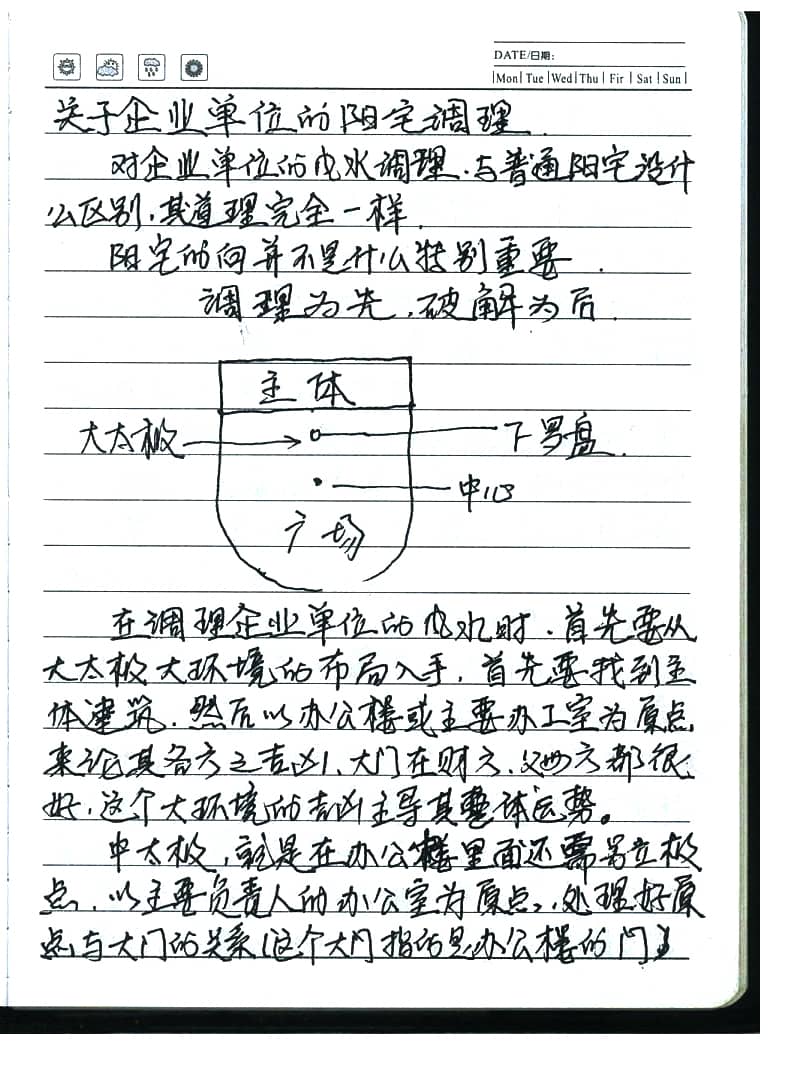 DATE/日期:
Mon Tue Wed Thu Fir Sat Sun
关于企业单位的阳宅调理.
对企业单位的风水调理.与普通阳宅没什
么区别,其道理完全一样.
阳宅的向并不是什么特别重要.
调理为先,破解为后.
主体
大太极
下罗盘.
中心
广场
在调理企业单位的风水时.首先要从
大太极大环境的布局入手,首先要找到主
体建筑.然后以办公楼或主要办工室为原点,
来论其各方之吉凶,大门在财方、 方都很
好,这个大环境的吉凶主导其整体运势。
中太极,就是在办公楼里面还需另立极
点,以主要负责人的办公室为原点,处理好原
点与大门的关系(这个大门指的是办公楼的门)